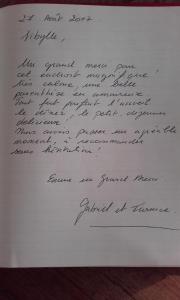 27 Août 2017
Sibylle,
Un grand merci pour
cet endroit magnifique !
Très calme, une belle
parenthèse en amoureux
Tout fut parfait l'accueil
le dîner, le petit déjeuner
délicieux
Nous avons passé un agréable
moment, à recommander
sans hésitation !
Encore un Grand Merci
Gabriel et